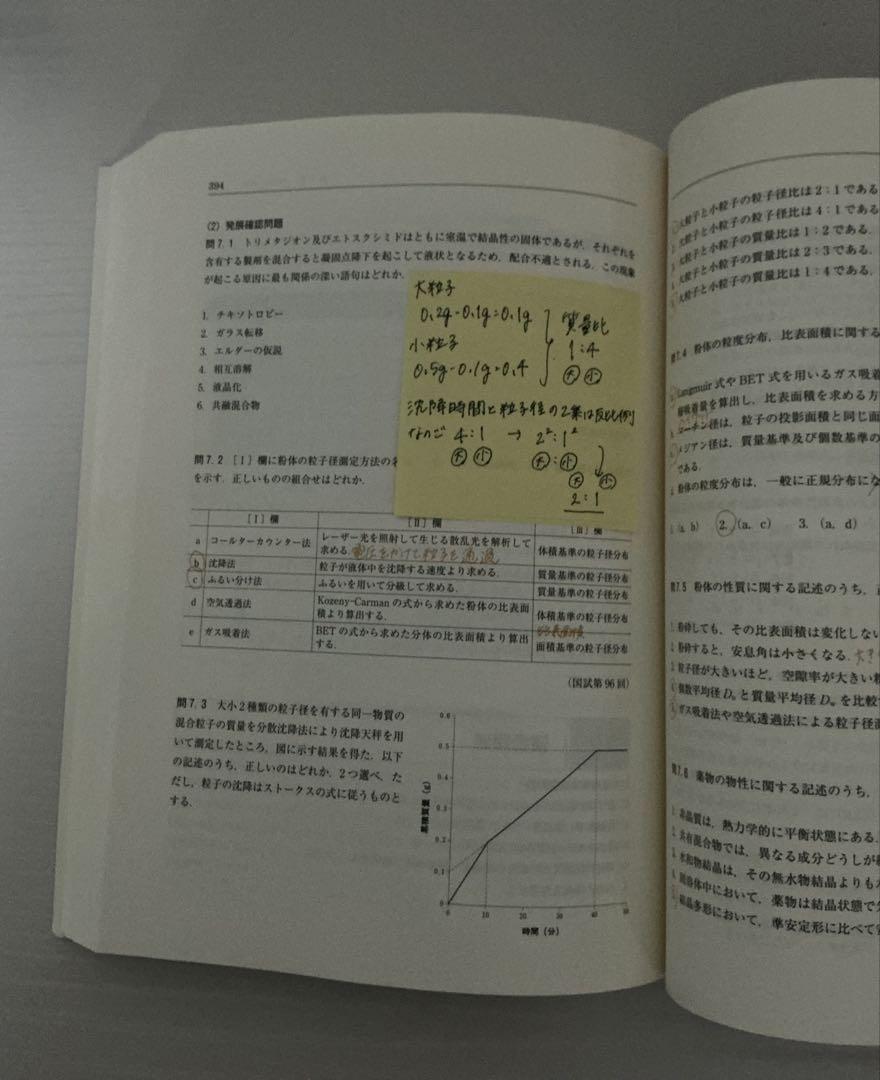 394
(2) 発展確認問題
問7.1 トリメタジオン及びエトスクシミドはともに室温で結晶性の固体であるが，それぞれを
含有する製剤を混合すると凝固点降下を起こして液状となるため，配合不適とされる．この現象
が起こる原因に最も関係の深い語句はどれか．
1. チキソトロピー
2. ガラス転移
3. エルダーの仮説
4. 相互溶解
5. 液晶化
6. 共融混合物
大粒子
0.2g-0.1g=0.1g
小粒子
0.5g-0.1g=0.4
質量比
1:4
大 小
沈降時間と粒子径の2乗は反比例
なので 4:1 → 2²:1²
大 小 大:小
大 小
2:1
問7.2 [I]欄に粉体の粒子径測定方法の
を示す．正しいものの組合せはどれか．
[I]欄 [II]欄 [III]欄
a コールターカウンター法 レーザー光を照射して生じる散乱光を解析して求める． 体積基準の粒子径分布
電圧をかけて粒子を通過
b 沈降法 粒子が液体中を沈降する速度より求める． 質量基準の粒子径分布
c ふるい分け法 ふるいを用いて分級して求める． 質量基準の粒子径分布
d 空気透過法 Kozeny-Carmanの式から求めた粉体の比表面積より算出する． 体積基準の粒子径分布
e ガス吸着法 BETの式から求めた分体の比表面積より算出する． 面積基準の粒子径分布
(国試第96回)
問7.3 大小2種類の粒子径を有する同一物質の
混合粒子の質量を分散沈降法により沈降天秤を用
いて測定したところ，図に示す結果を得た．以下
の記述のうち，正しいのはどれか．2つ選べ．た
だし，粒子の沈降はストークスの式に従うものと
する．
0.6
0.5
0.4
0.3
0.2
0.1
0
累積質量 (g)
0 10 20 30 40 50
時間 (分)
大粒子と小粒子の粒子径比は2：1である
大粒子と小粒子の粒子径比は4：1である
大粒子と小粒子の質量比は1：2である．
大粒子と小粒子の質量比は2：3である．
大粒子と小粒子の質量比は1：4である．
問7.4 粉体の粒度分布，比表面積に関する
Langmuir式やBET式を用いるガス吸着
吸着量を算出し，比表面積を求める方
ーチン径は，粒子の投影面積と同じ面
メジアン径は，質量基準及び個数基準の
である．
粉体の粒度分布は，一般に正規分布にな
1. (a, b) 2. (a, c) 3. (a, d)
問7.5 粉体の性質に関する記述のうち，
1. 粉砕しても，その比表面積は変化しない
2. 粉砕すると，安息角は小さくなる．大き
粒子径が大きいほど，空隙率が大きい
個数平均径Dnと質量平均径Dwを比較
ガス吸着法や空気透過法による粒子径
問7.6 薬物の物性に関する記述のうち，
1. 非晶質は，熱力学的に平衡状態にある．
2. 共有混合物では，異なる成分どうしが
3. 水和物結晶は，その無水物結晶よりも
4. 固溶体中において，薬物は結晶状態で
結晶多形において，準安定形に比べて